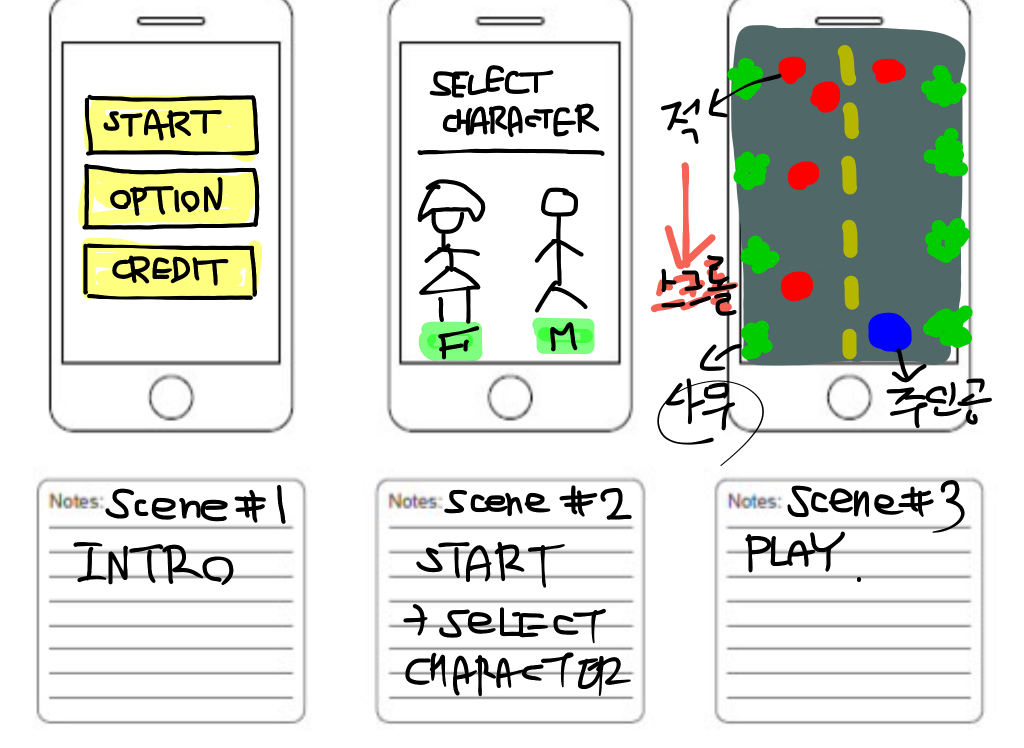 START
OPTION
CREDIT
SELECT
CHARACTER
F
M
적
스크롤
나무
주인공
Notes: Scene #1
INTRO
Notes: Scene #2
START
→ SELECT
CHARACTER
Notes: Scene #3
PLAY.